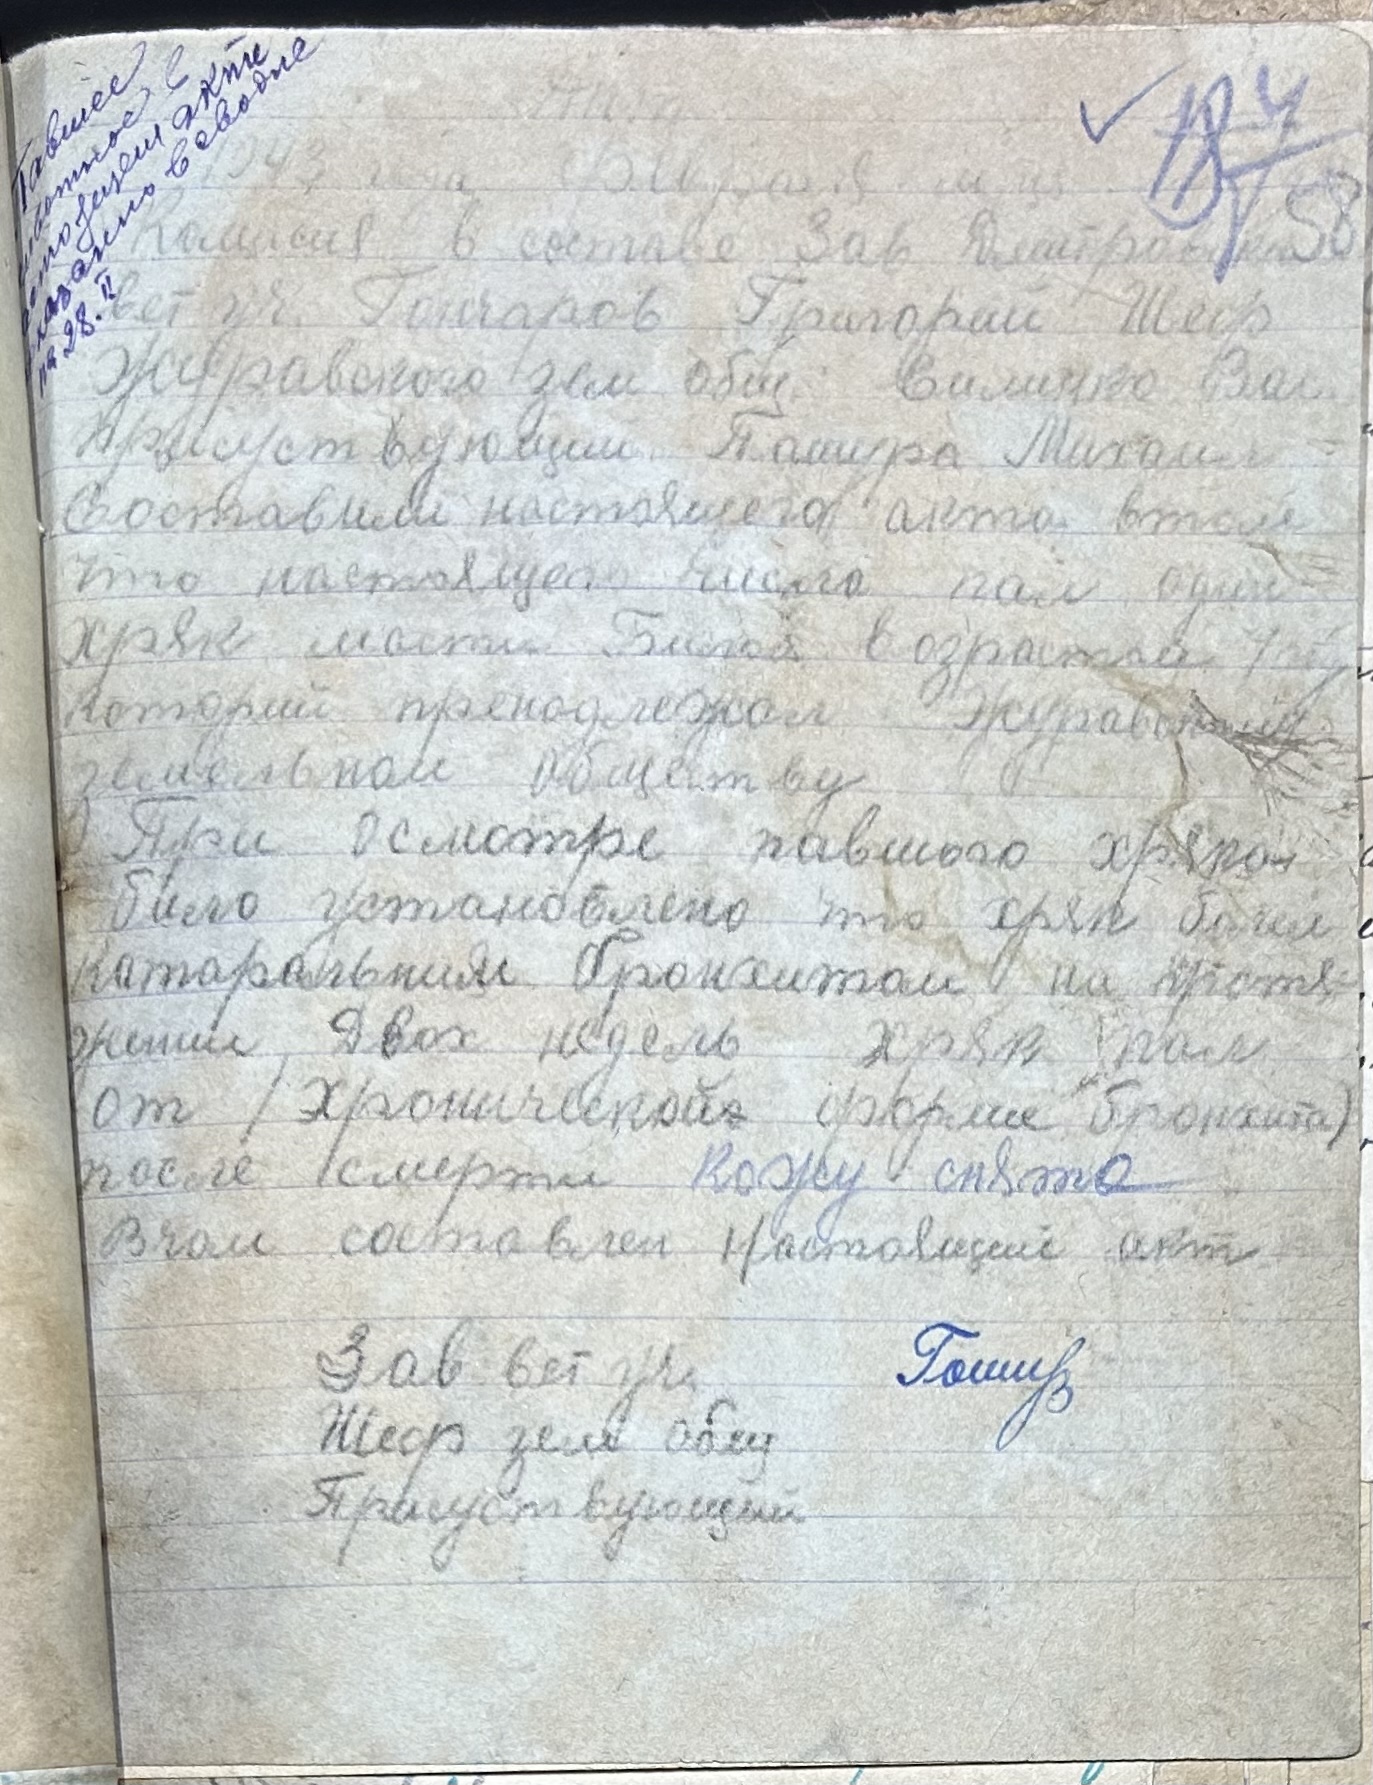 Павшее
животное в
настоящем акте
указанно в сводке
на 28.II
58
Акт
1943 года Февраля м-ца
Комисия в составе Зав
вет уч. Гончаров Григорий Шеф
Журавского зем общ.
Присуствующий Михаил
Составили настоящего акта втом
что настоящего числа пал один
хряк масти Билой возраста
которий преподлежал Журавский
земельном обществу
При осмотре павшого хряка
било установлено что хряк болел
катаральним бронхитом на протя-
жении Двох недель хряк пал
от /Хронической форми бронхита)
после смерти кожу снято
Вчом составлен настоящий акт
Зав вет уч.
Шеф зем общ
Присуствующий